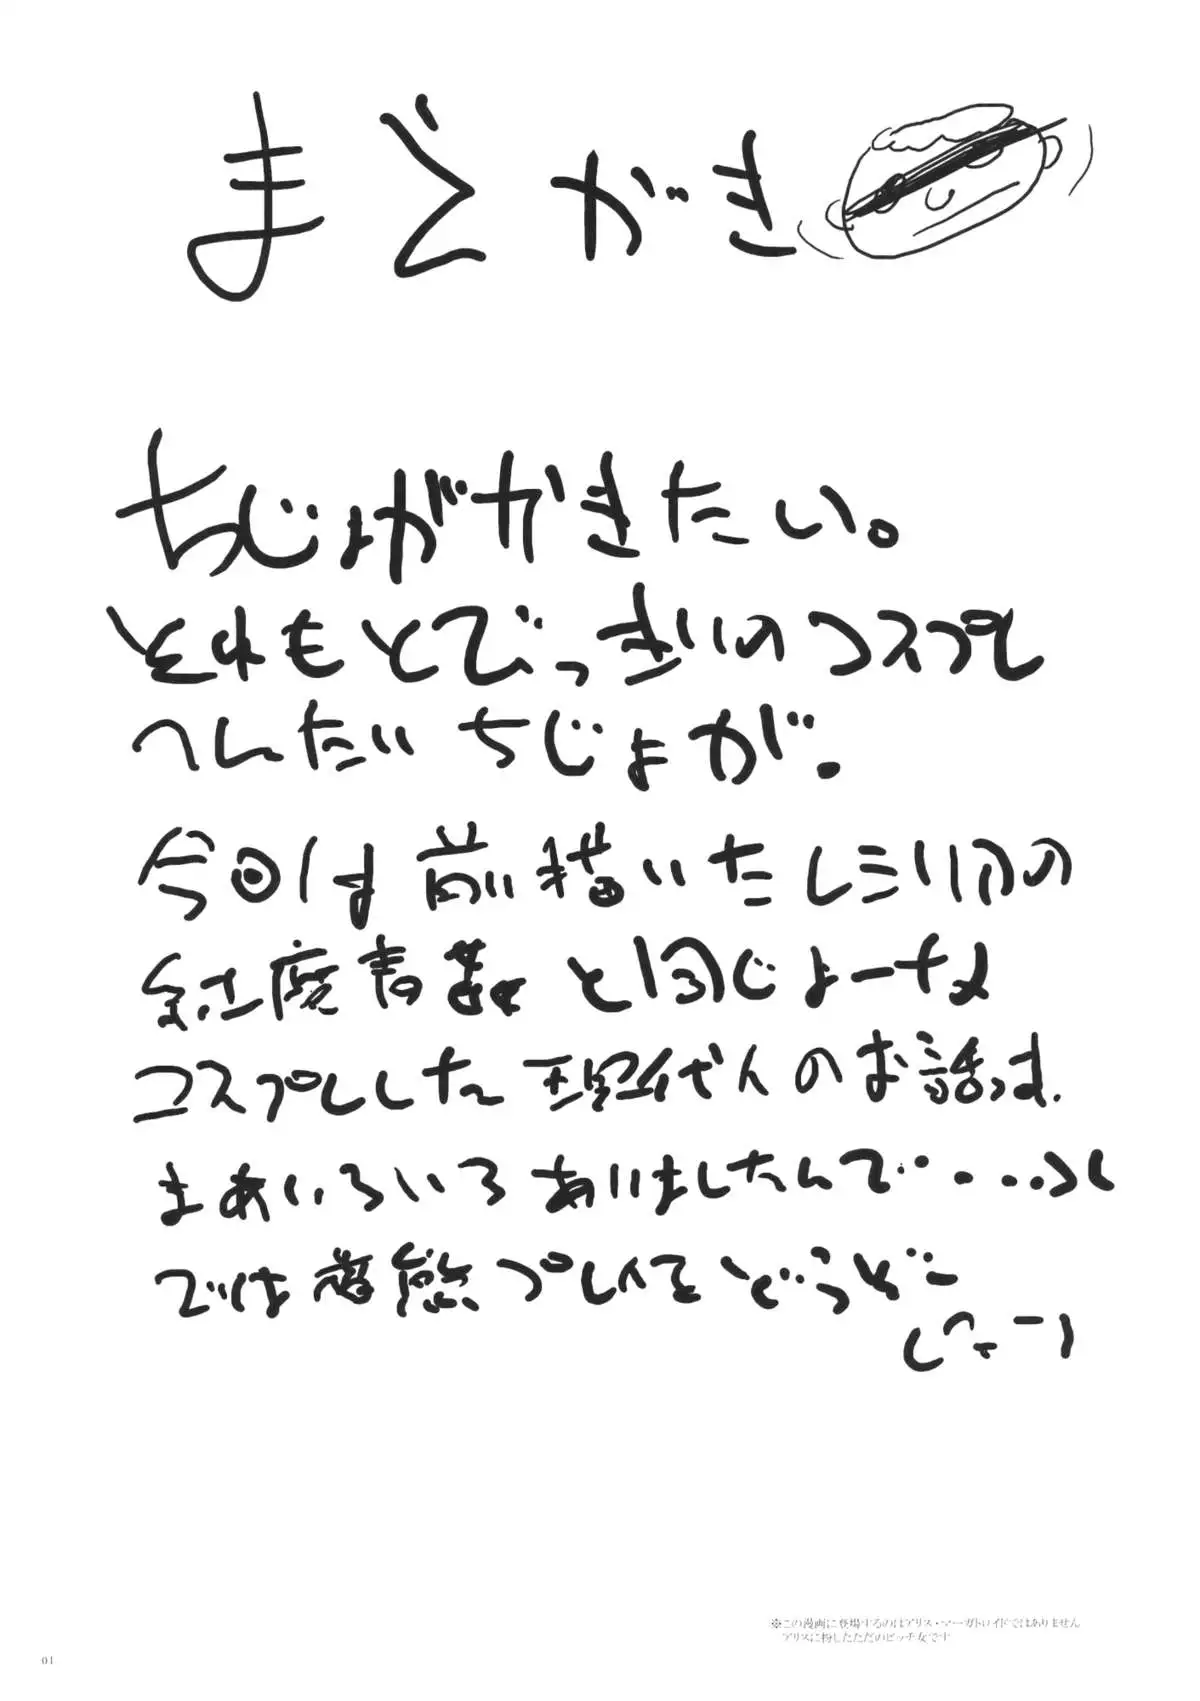 まえがき
ちじょがかきたい。
それもとびっきりのコスプレ
へんたい ちじょが。
今回は前描いたレミリアの
純度青姦と同じよーな
コスプレした現代人のお話っす.
まあいろいろありましたんで・・・...
では プレイをどうぞー
※この漫画に登場するのはアリス・マーガトロイドではありません
アリスに扮したただのビッチ女です
01